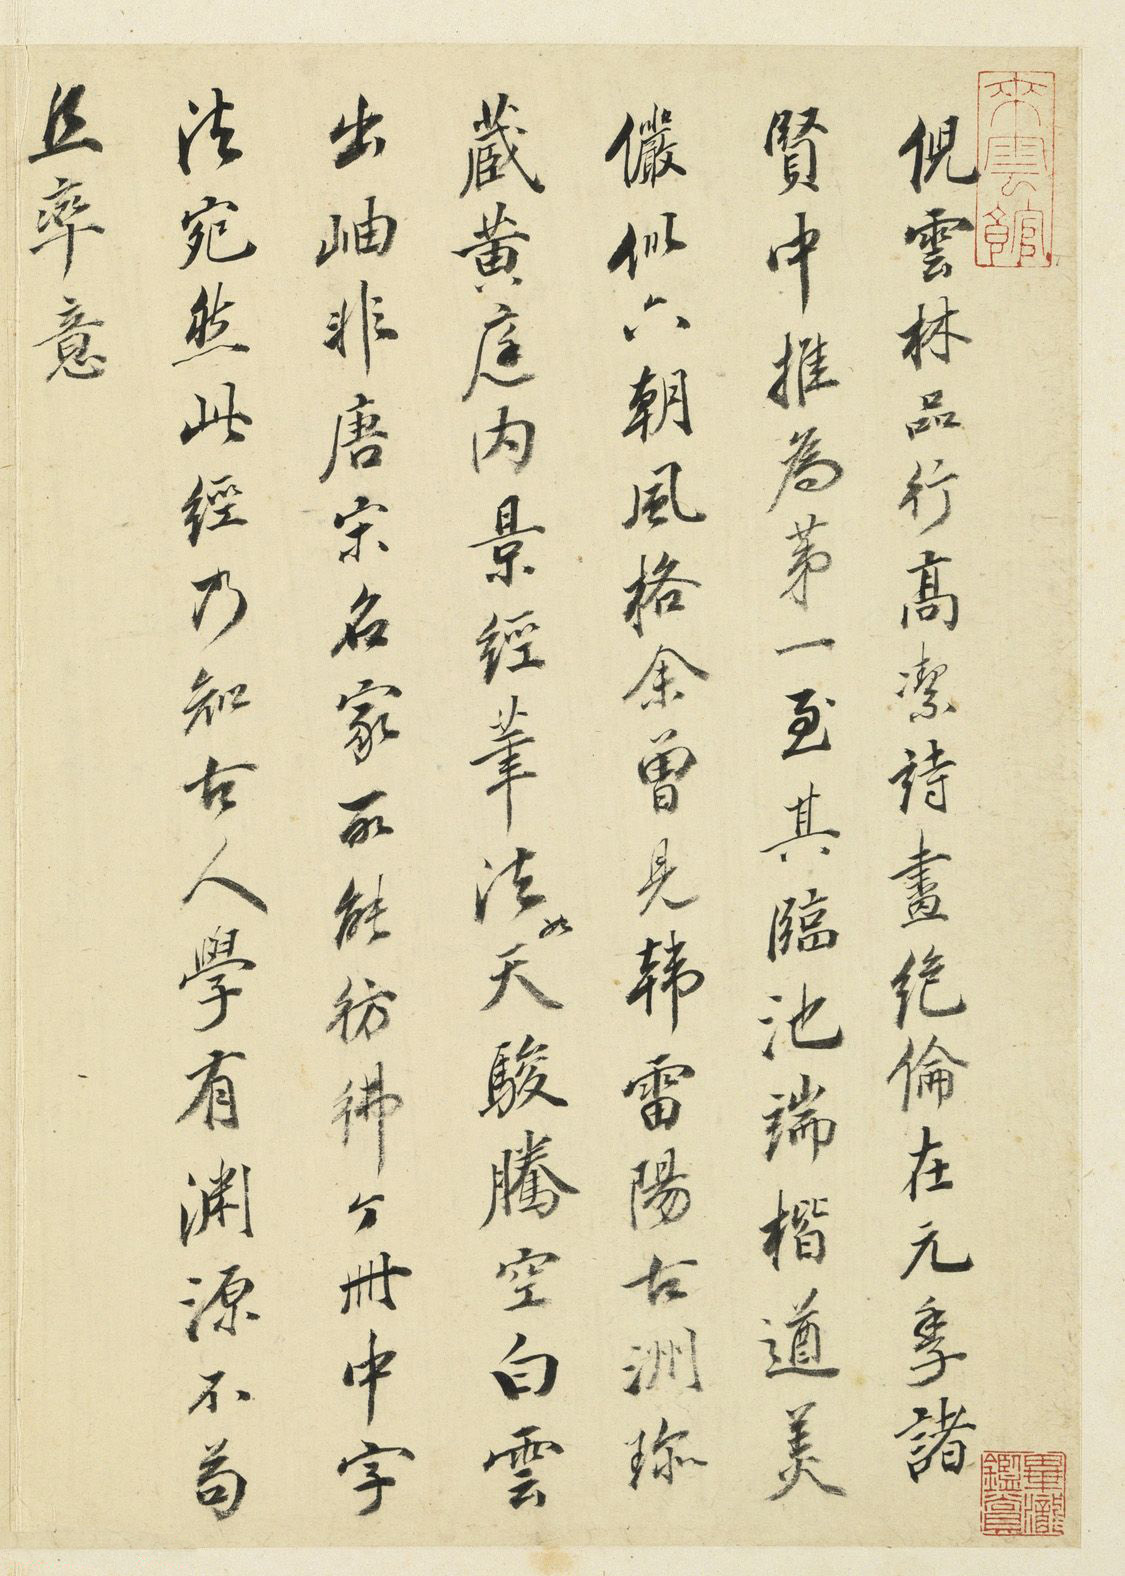 倪雲林品行高潔詩畫絶倫在元季諸
賢中推為第一至其臨池端楷遒美
儼似六朝風格余曾見韩雷陽古洲珎
藏黄庭内景經筆法如天駿騰空白雲
出岫非唐宋名家所能彷彿今冊中字
法宛然此經乃知古人學有淵源不苟
且率意
來雲館
畢瀧鑑賞